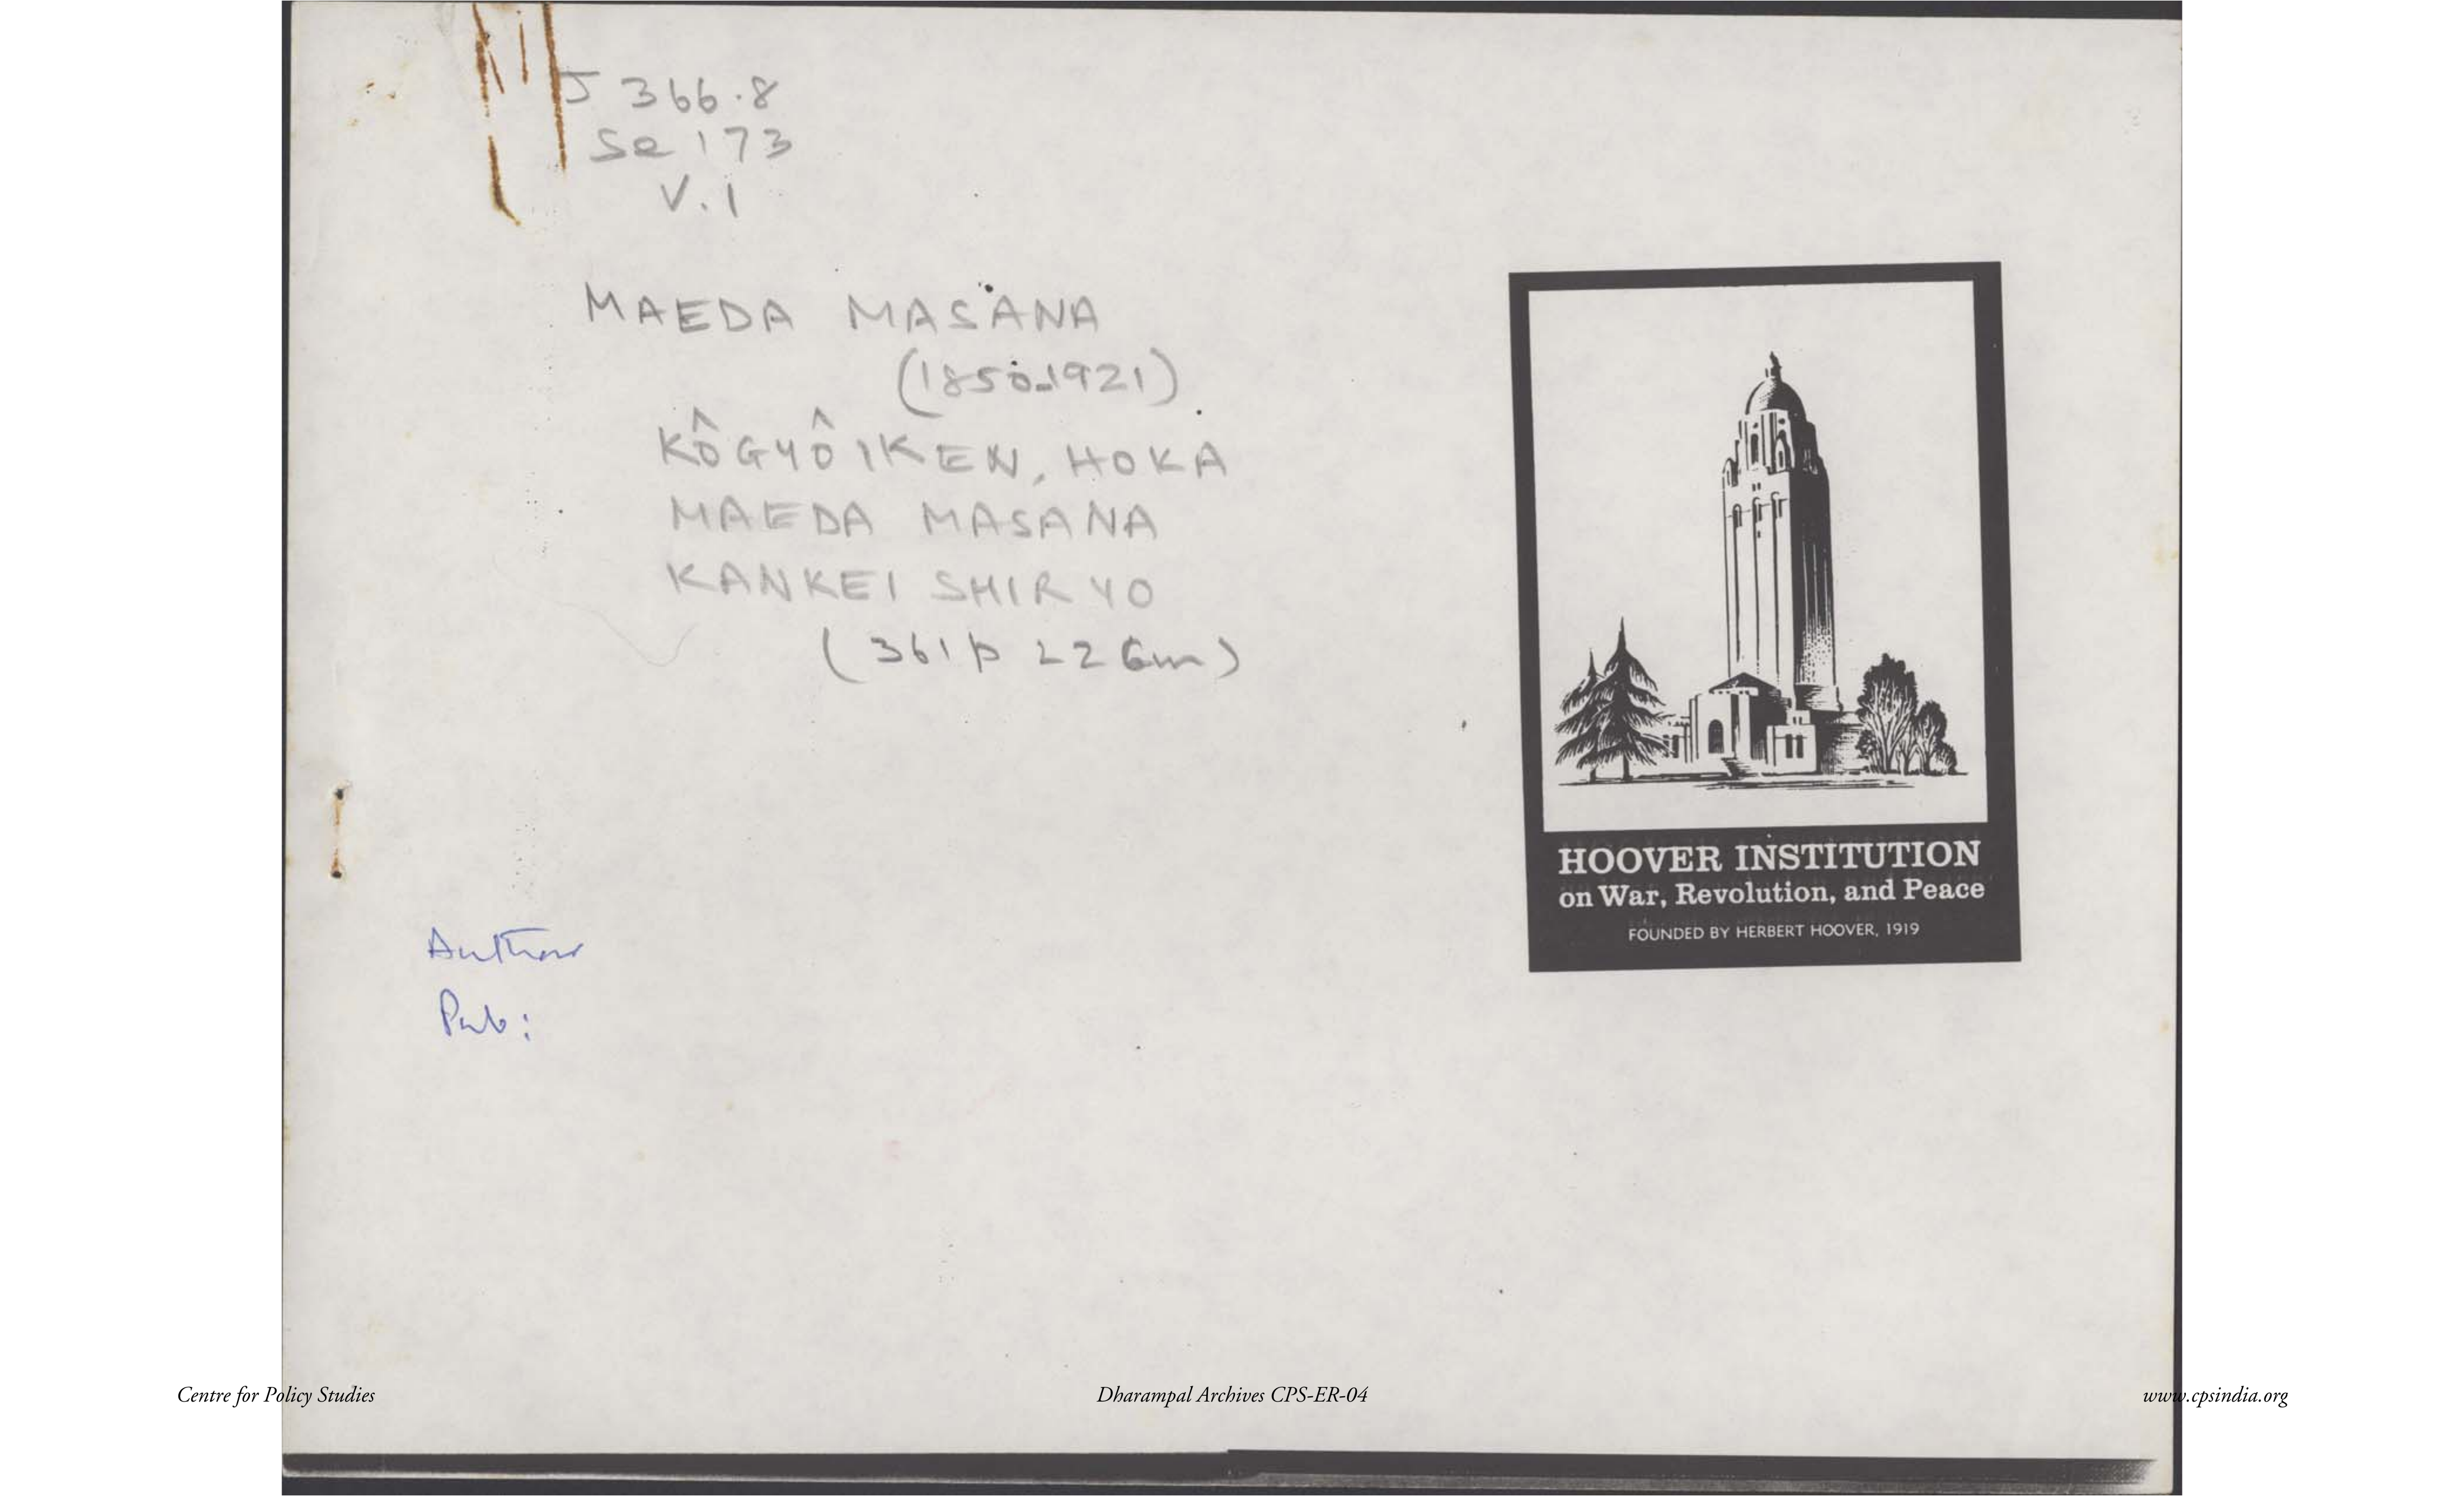 J 366.8
Se 173
V.1
MAEDA MASANA
(1850-1921)
KÔGYÔ IKEN, HOKA
MAEDA MASANA
KANKEI SHIRYO
(361p 22cm)
HOOVER INSTITUTION
on War, Revolution, and Peace
FOUNDED BY HERBERT HOOVER, 1919
Author
Pub:
Centre for Policy Studies
Dharampal Archives CPS-ER-04
www.cpsindia.org